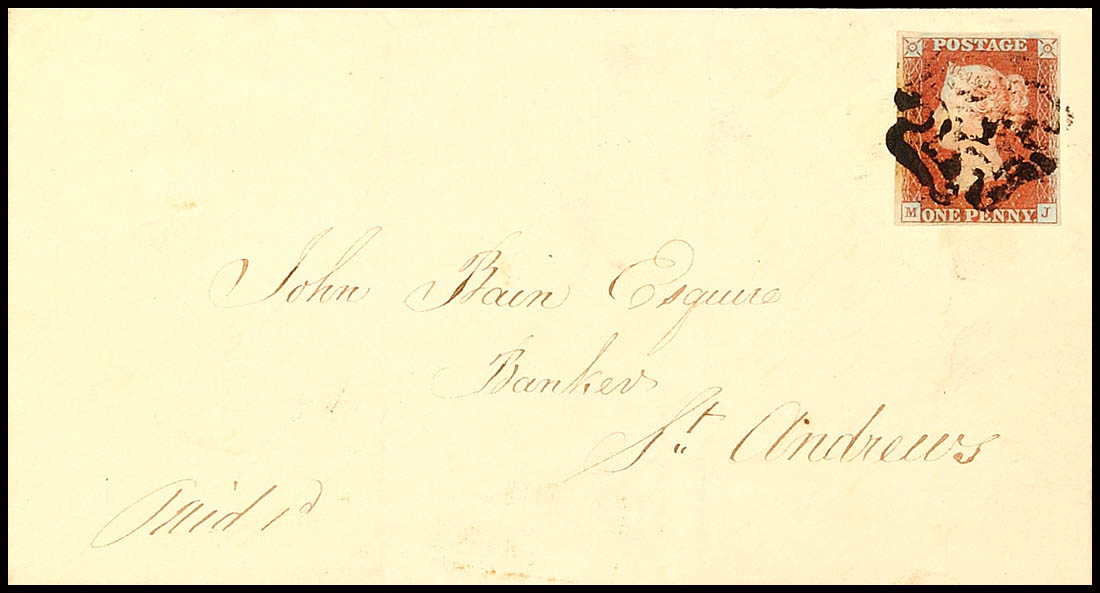 POSTAGE
M ONE PENNY J
John Bain Esquire
Banker
St. Andrews
Paid 1d